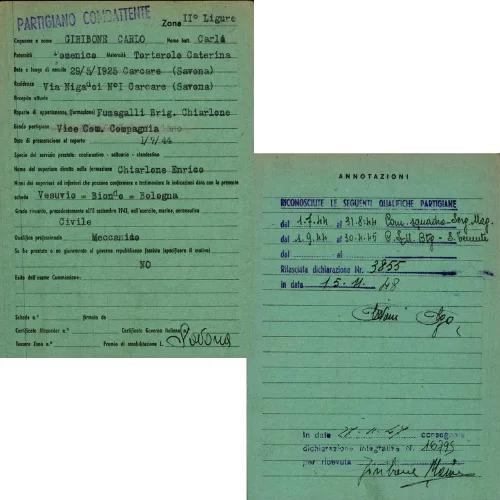 PARTIGIANO COMBATTENTE
Zona IIº Ligure
Cognome e nome GIRIBONE CARLO Nome batt. Carlo
Paternità Domenico Maternità Torterolo Caterina
Data e luogo di nascita 29/5/1925 Carcare (Savona)
Residenza Via Nº I Carcare (Savona)
Recapito attuale
Reparto di appartenenza (formazione) Fumagalli Brig. Chiarlone
Grado partigiano Vice Com. Compagnia
Data di presentazione al reparto 1/7/44
Specie del servizio prestato: continuativo - saltuario - clandestino
Nome del superiore diretto nella formazione Chiarlone Enrico
Nomi dei superiori ed inferiori che possono confermare e testimoniare le indicazioni date con la presente
scheda Vesuvio = Biondo = Bologna
Grado rivestito, precedentemente all'8 settembre 1943, nell'esercito, marina, aeronautica
Civile
Qualifica professionale Meccanico
Se ha prestato o no giuramento al governo repubblicano fascista (specificare il motivo)
NO
Esito dell'esame Commissione:
Scheda n.º firmata da
Certificato Alexander n.º Certificato Governo Italiano n.º
Tessera Corpo n.º Premio di smobilitazione L. Savona
ANNOTAZIONI
RICONOSCIUTE LE SEGUENTI QUALIFICHE PARTIGIANE
dal 1.7.44 al 31.8.44 Com. squadra - Serg. Mag.
dal 1.9.44 al 30.4.45 Btg - S. Tenente
dal al
Rilasciata dichiarazione Nr. 3855
in data 15.11.48
In data 47 consegnata
dichiarazione integrativa N. 16795
per ricevuta Giribone